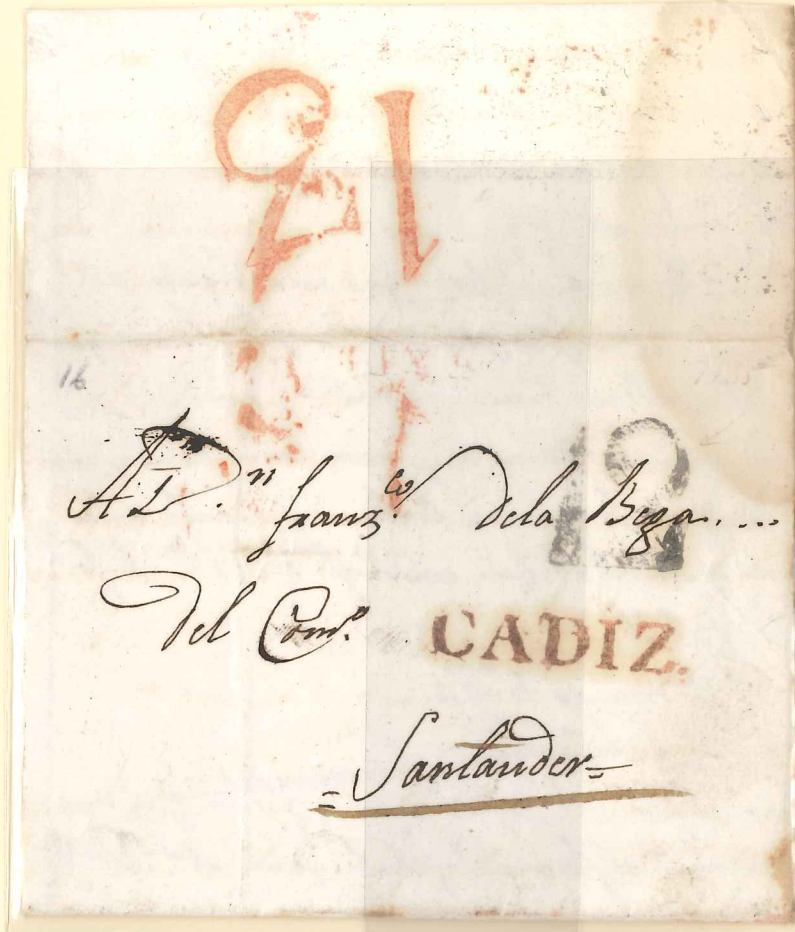 16
12
A D.ⁿ franz.ᶜᵒ dela Bega....
del Com.ᵒ
CADIZ.
= Santander =